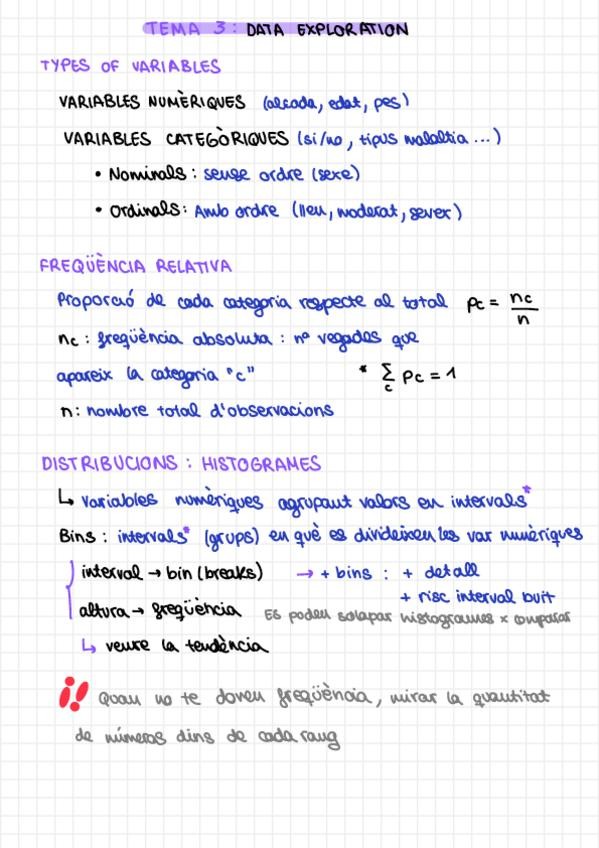 TEMA 3: DATA EXPLORATION
TYPES OF VARIABLES
VARIABLES NUMÈRIQUES (alçada, edat, pes)
VARIABLES CATEGÒRIQUES (si/no, tipus malaltia ...)
• Nominals: sense ordre (sexe)
• Ordinals: Amb ordre (lleu, moderat, sever)
FREQÜÈNCIA RELATIVA
Proporció de cada categoria respecte al total pc = nc/n
nc: freqüència absoluta: nº vegades que
apareix la categoria "c" * Σc pc = 1
n: nombre total d'observacions
DISTRIBUCIONS: HISTOGRAMES
↳ variables numèriques agrupant valors en intervals*
Bins: intervals* (grups) en què es divideixen les var numèriques
interval → bin (breaks) → + bins : + detall
+ risc interval buit
altura → freqüència Es poden solapar histogrames x comparar
↳ veure la tendència
¡! Quan no te donen freqüència, mirar la quantitat
de números dins de cada rang